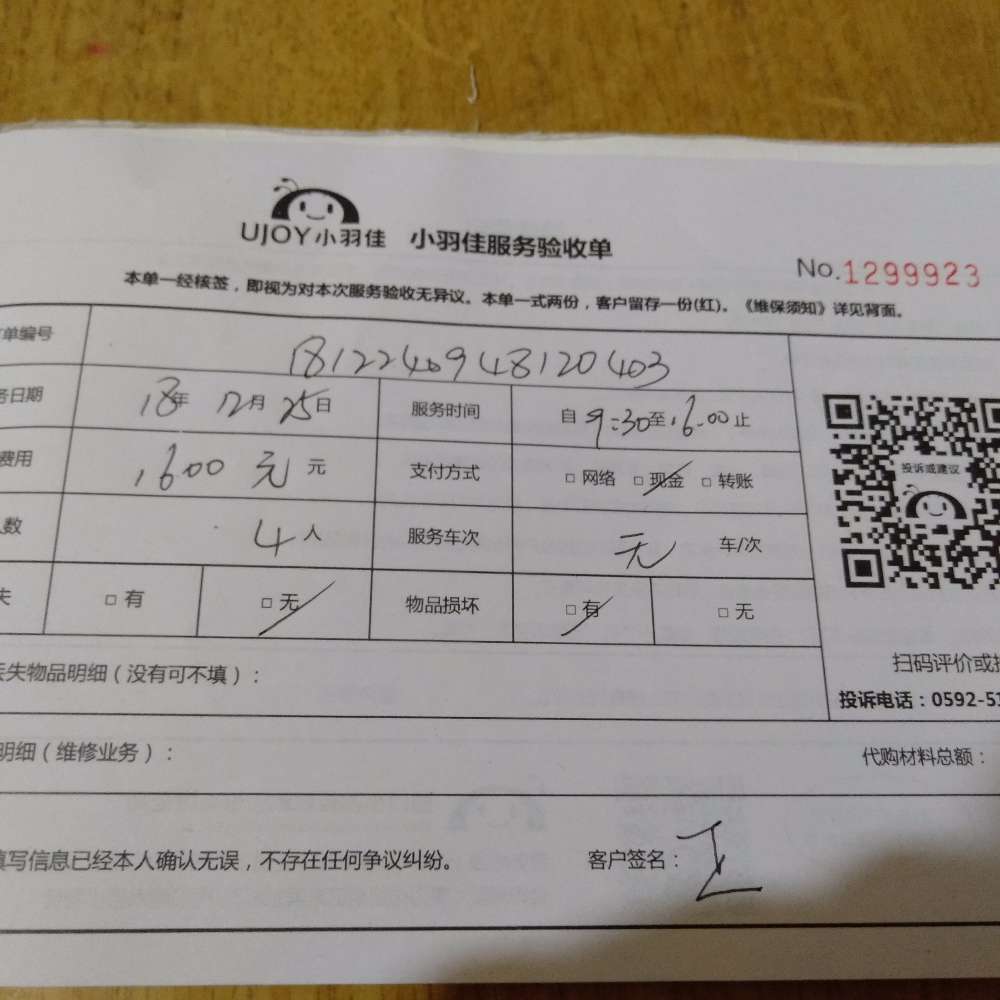 UJOY小羽佳 小羽佳服务验收单
No.1299923
本单一经核签，即视为对本次服务验收无异议。本单一式两份，客户留存一份(红)。《维保须知》详见背面。
单编号 1812240948120403
务日期 18年 12月 25日 服务时间 自 9:30至16:00止
费用 1600 元 元 支付方式 □ 网络 □ 现金 □ 转账
投诉或建议
人数 4人 服务车次 无 车/次
失 □ 有 □ 无 物品损坏 □ 有 □ 无
丢失物品明细（没有可不填）：
扫码评价或
投诉电话：0592-51
明细（维修业务）： 代购材料总额：
填写信息已经本人确认无误，不存在任何争议纠纷。 客户签名：